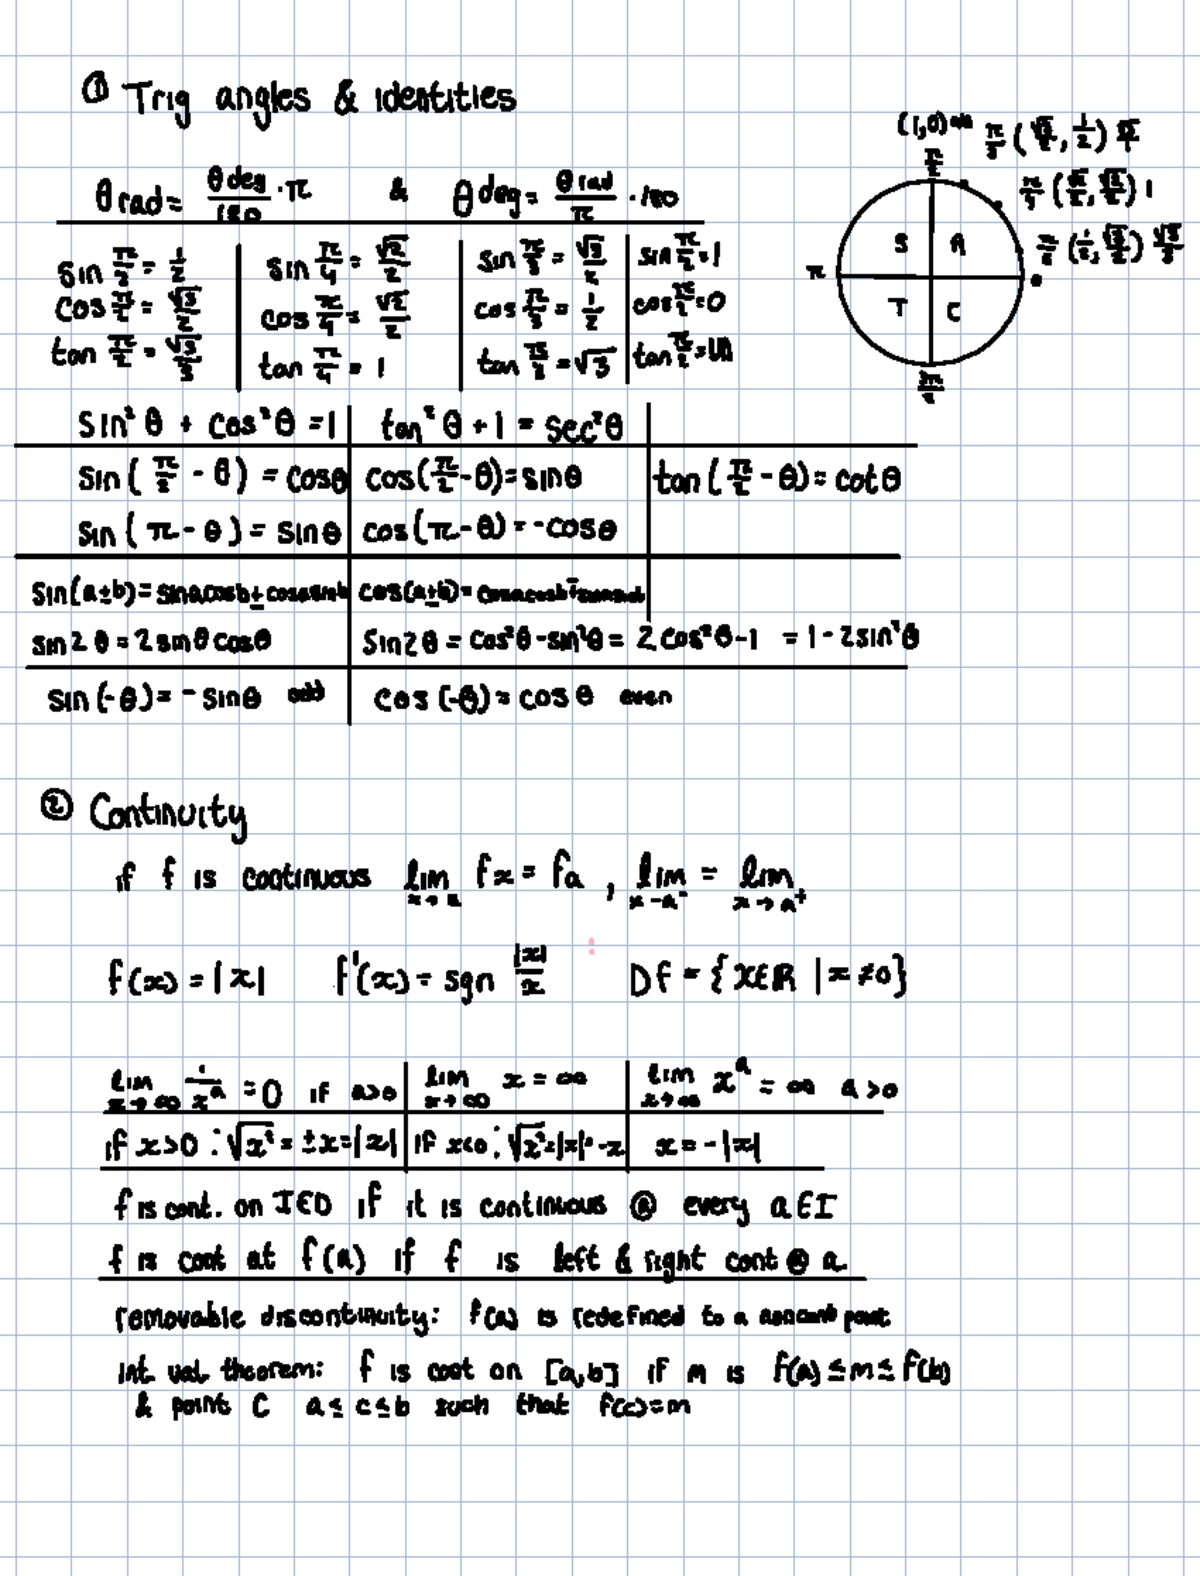 ① Trig angles & identities
θ rad = θ deg/180 · π & θ deg = θ rad/π · 180
sin = 1/2
cos = √3/2
tan = √3/3
sin π/4 = √2/2
cos π/4 = √2/2
tan π/4 = 1
sin π/3 = √3/2
cos π/3 = 1/2
tan = √3
sin π/2 = 1
cos π/2 = 0
tan π/2 =
(1,0)
π/2
π/3 (, 1/2)
π/4 (√2/2, √2/2) 1
(1/2, √3/2) √3/3
S A
π
T C
3π/2
sin² θ + cos² θ = 1 tan² θ + 1 = sec² θ
sin ( π/2 - θ ) = cos θ cos(π/2 - θ) = sin θ tan ( π/2 - θ) = cot θ
sin ( π - θ ) = sin θ cos (π - θ) = -cos θ
sin(a±b) = sinacosb ± cosasinb cos(a±b) = cosacosb ∓ sinasinb
sin 2 θ = 2 sin θ cos θ Sin 2 θ = cos² θ - sin² θ = 2 cos² θ - 1 = 1 - 2 sin² θ
sin (-θ) = - sin θ odd cos (-θ) = cos θ even
② Continuity
if f is continuous lim x→a fx = fa , lim x→a⁻ = lim x→a⁺
f(x) = |x| f'(x) = sgn |x|/x Df = {x∈R | x ≠ 0}
lim x→∞ 1/xᵃ = 0 if a>0 lim x→∞ x = ∞ lim x→∞ xᵃ = ∞ a > 0
if x>0 : √x² = ±x = |x| if x<0 : √x² = |x| = -x x = -|x|
f is cont. on I∈D if it is continuous @ every a ∈ I
f is cont at f(a) if f is left & right cont @ a.
removable discontinuity: f(a) is redefined to a point
Int. val. theorem: f is cont on [a,b] if m is f(a) ≤ m ≤ f(b)
& point C a ≤ c ≤ b such that f(c) = m